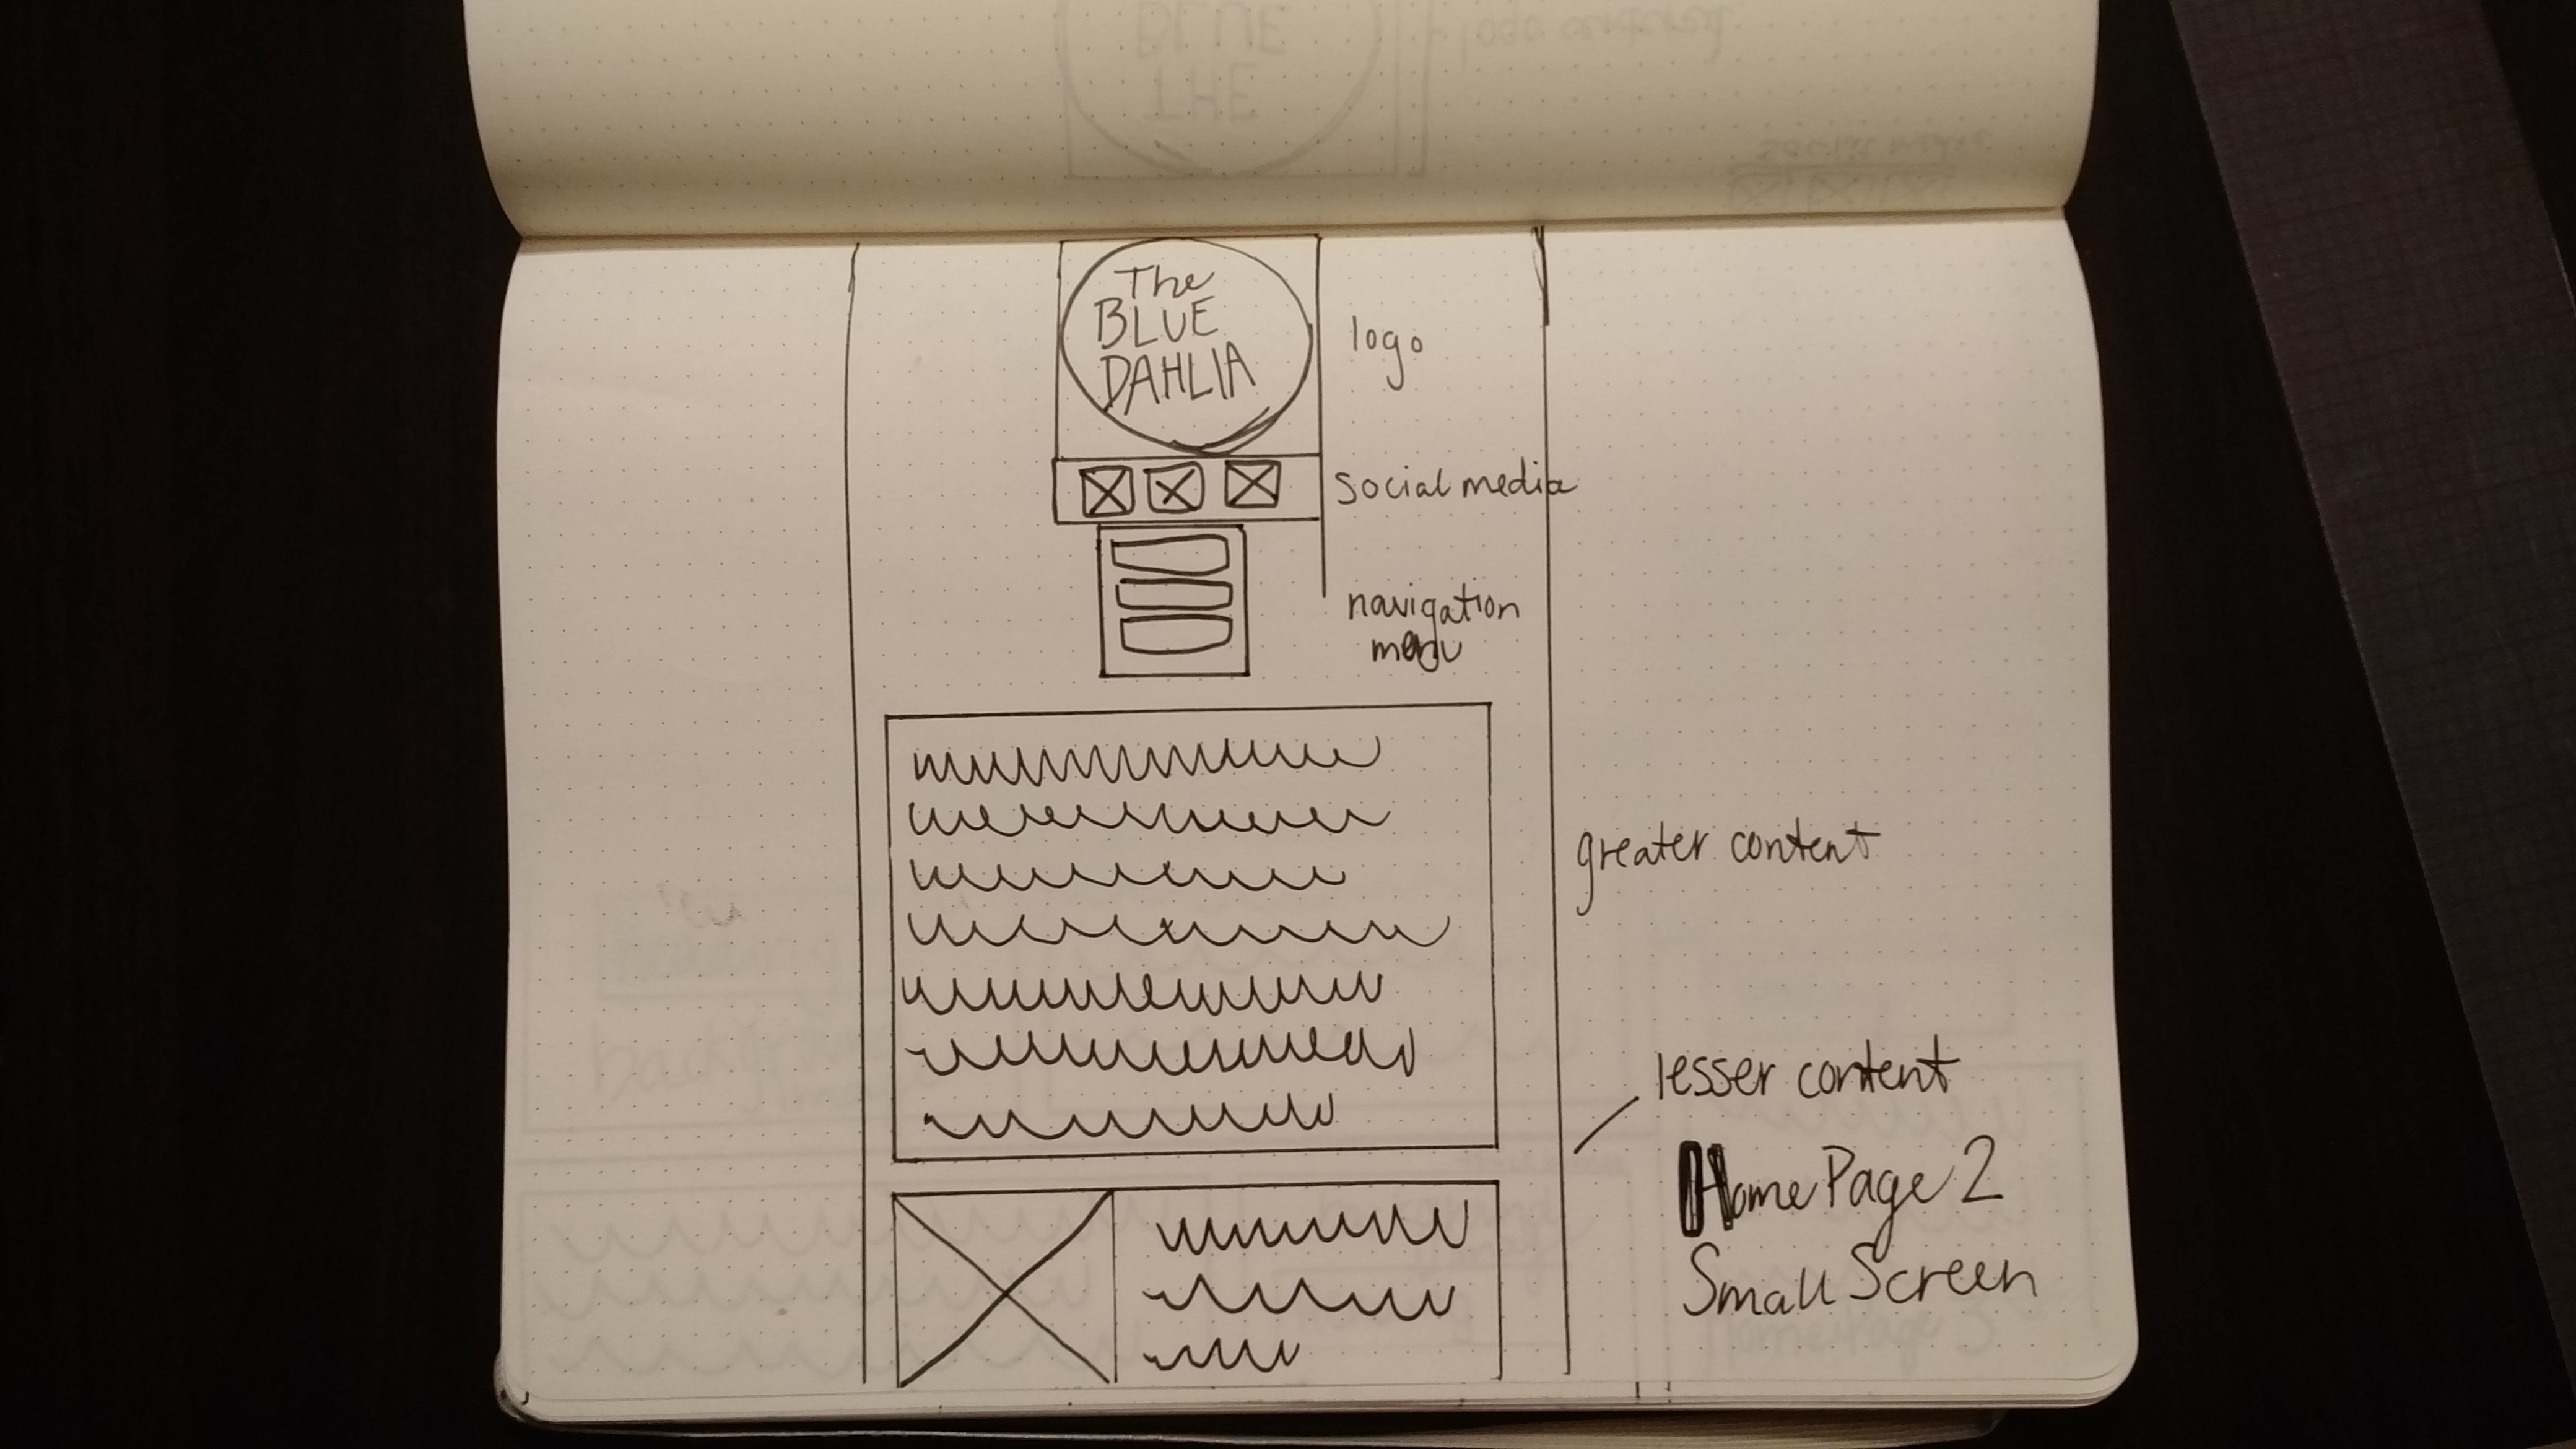 The
BLUE
DAHLIA
logo
social media
navigation
menu
greater content
lesser content
Home Page 2
Small Screen